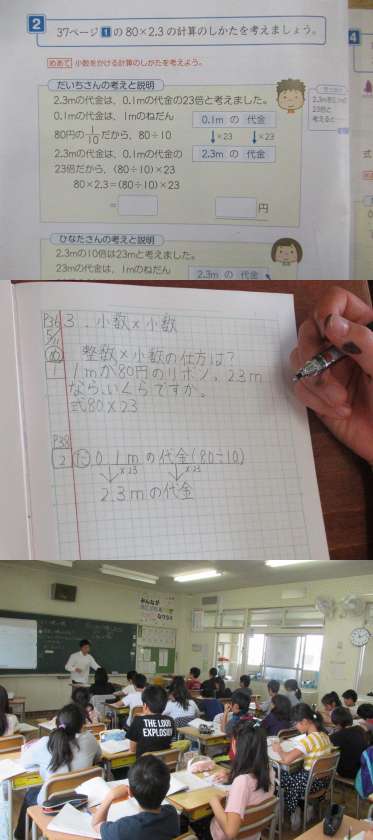 2
37ページ1の80×2.3の計算のしかたを考えましょう。
めあて 小数をかける計算のしかたを考えよう。
だいちさんの考えと説明
2.3mの代金は、0.1mの代金の23倍と考えました。
0.1mの代金は、1mのねだん
80円の1/10だから、80÷10
2.3mの代金は、0.1mの代金の
23倍だから、(80÷10)×23
80×2.3=(80÷10)×23
=
円
0.1mの代金
×23 ×23
2.3mの代金
2.3mを0.1mの
23倍と
考えると
4
式
ひなたさんの考えと説明
2.3mの10倍は23mと考えました。
23mの代金は、1mのねだん
2.3mの代金
P36 3.小数×小数
め 整数×小数の仕方は?
1 1mが80円のリボン。2.3m
ならいくらですか。
式80×2.3
P38
2 0.1mの代金(80÷10)
×23 ×23
2.3mの代金
みんなが
THE LOVE
EXPLOSION